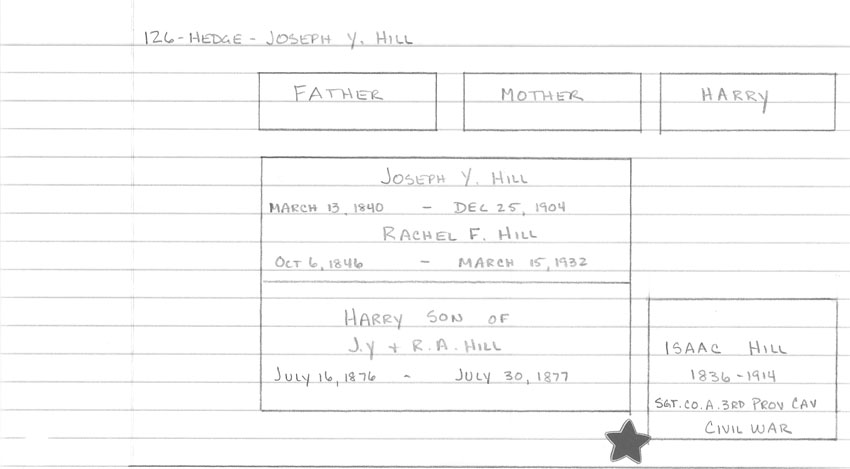 126-HEDGE - JOSEPH Y. HILL
FATHER
MOTHER
HARRY
JOSEPH Y. HILL
MARCH 13, 1840 - DEC 25, 1904
RACHEL F. HILL
OCT 6, 1846 - MARCH 15, 1932
HARRY SON OF
J.Y + R.A. HILL
JULY 16, 1876 - JULY 30, 1877
ISAAC HILL
1836-1914
SGT. CO. A. 3RD PROV CAV
CIVIL WAR